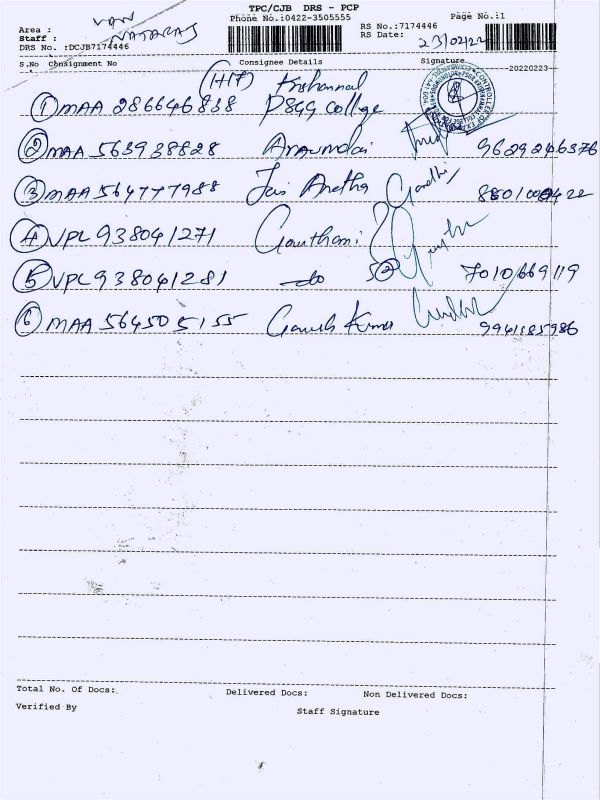 TPC/CJB DRS - PCP
Area : VAN Phone No.:0422-3505555 RS No.:7174446 Page No.:1
Staff : NATARAJ RS Date: 23/02/22
DRS No. :DCJB7174446
S.No Consignment No Consignee Details Signature 20220223
① MAA 286646838 (HIF) PSGG College
② MAA 563938828 9629246376
③ MAA 564777988 Jai Gandhi
④ VPL 938041271 Gauthami
⑤ VPL 938041281 do ② 7010669119
⑥ MAA 564505155 Ganesh Kumar 9941185986
Total No. Of Docs: Delivered Docs: Non Delivered Docs:
Verified By
Staff Signature